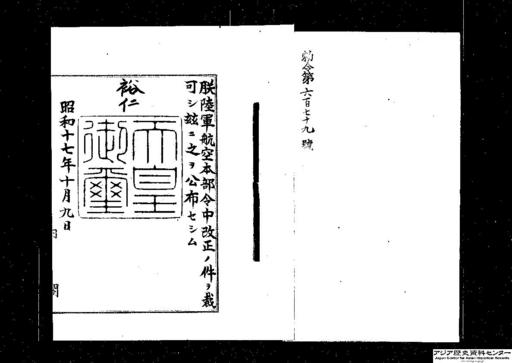 勅令第六百七十九號
朕陸軍航空本部令中改正ノ件ヲ裁
可シ玆ニ之ヲ公布セシム
裕仁
天皇
御璽
昭和十七年十月九日
内閣
アジア歴史資料センター
Japan Center for Asian Historical Records